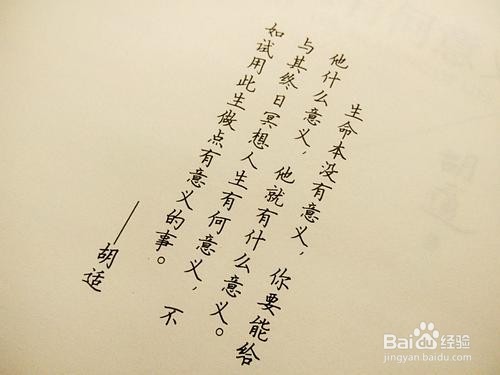 生命本没有意义，你要能给
他什么意义，他就有什么意义。
与其终日冥想人生有何意义，不
如试用此生做点有意义的事。
——胡适
Baidu经验
jingyan.baidu.com